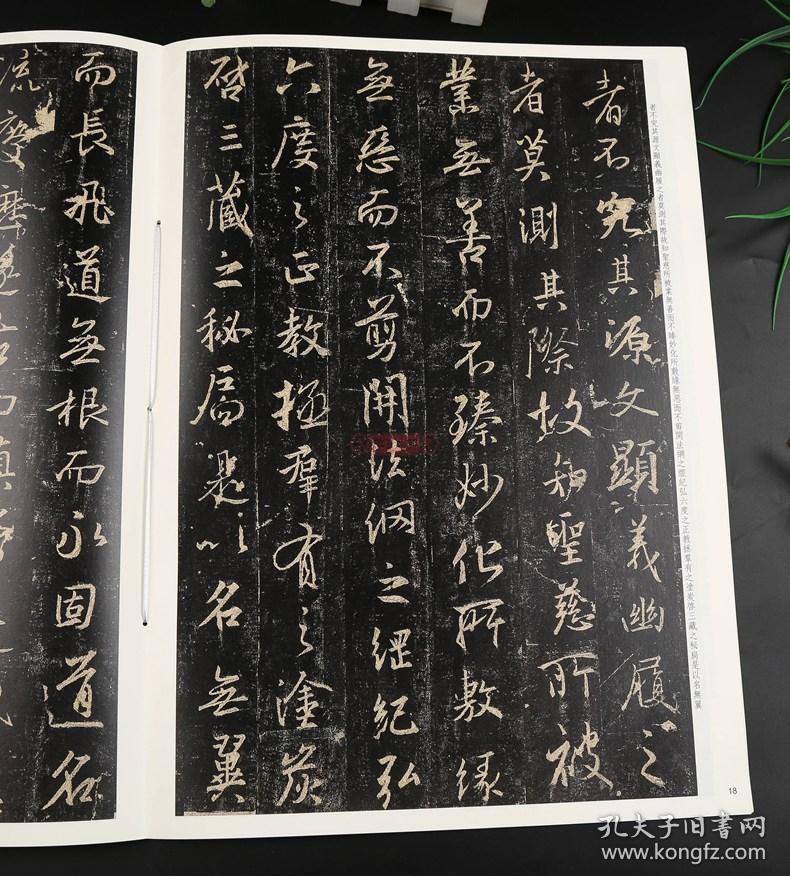 者不究其源文顯義幽履之者莫測其際故知聖慈所被業無善而不臻妙化所敷緣無惡而不剪開法網之綱紀弘六度之正教拯羣有之塗炭啓三藏之秘扃是以名無翼
者不究其源文顯義幽履之
者莫測其際故知聖慈所被
業無善而不臻妙化所敷緣
無惡而不剪開法網之綱紀弘
六度之正教拯羣有之塗炭
啓三藏之秘扃是以名無翼
而長飛道無根而永固道名
流慶歷遂古而鎮常
18
孔夫子旧书网
www.kongfz.com